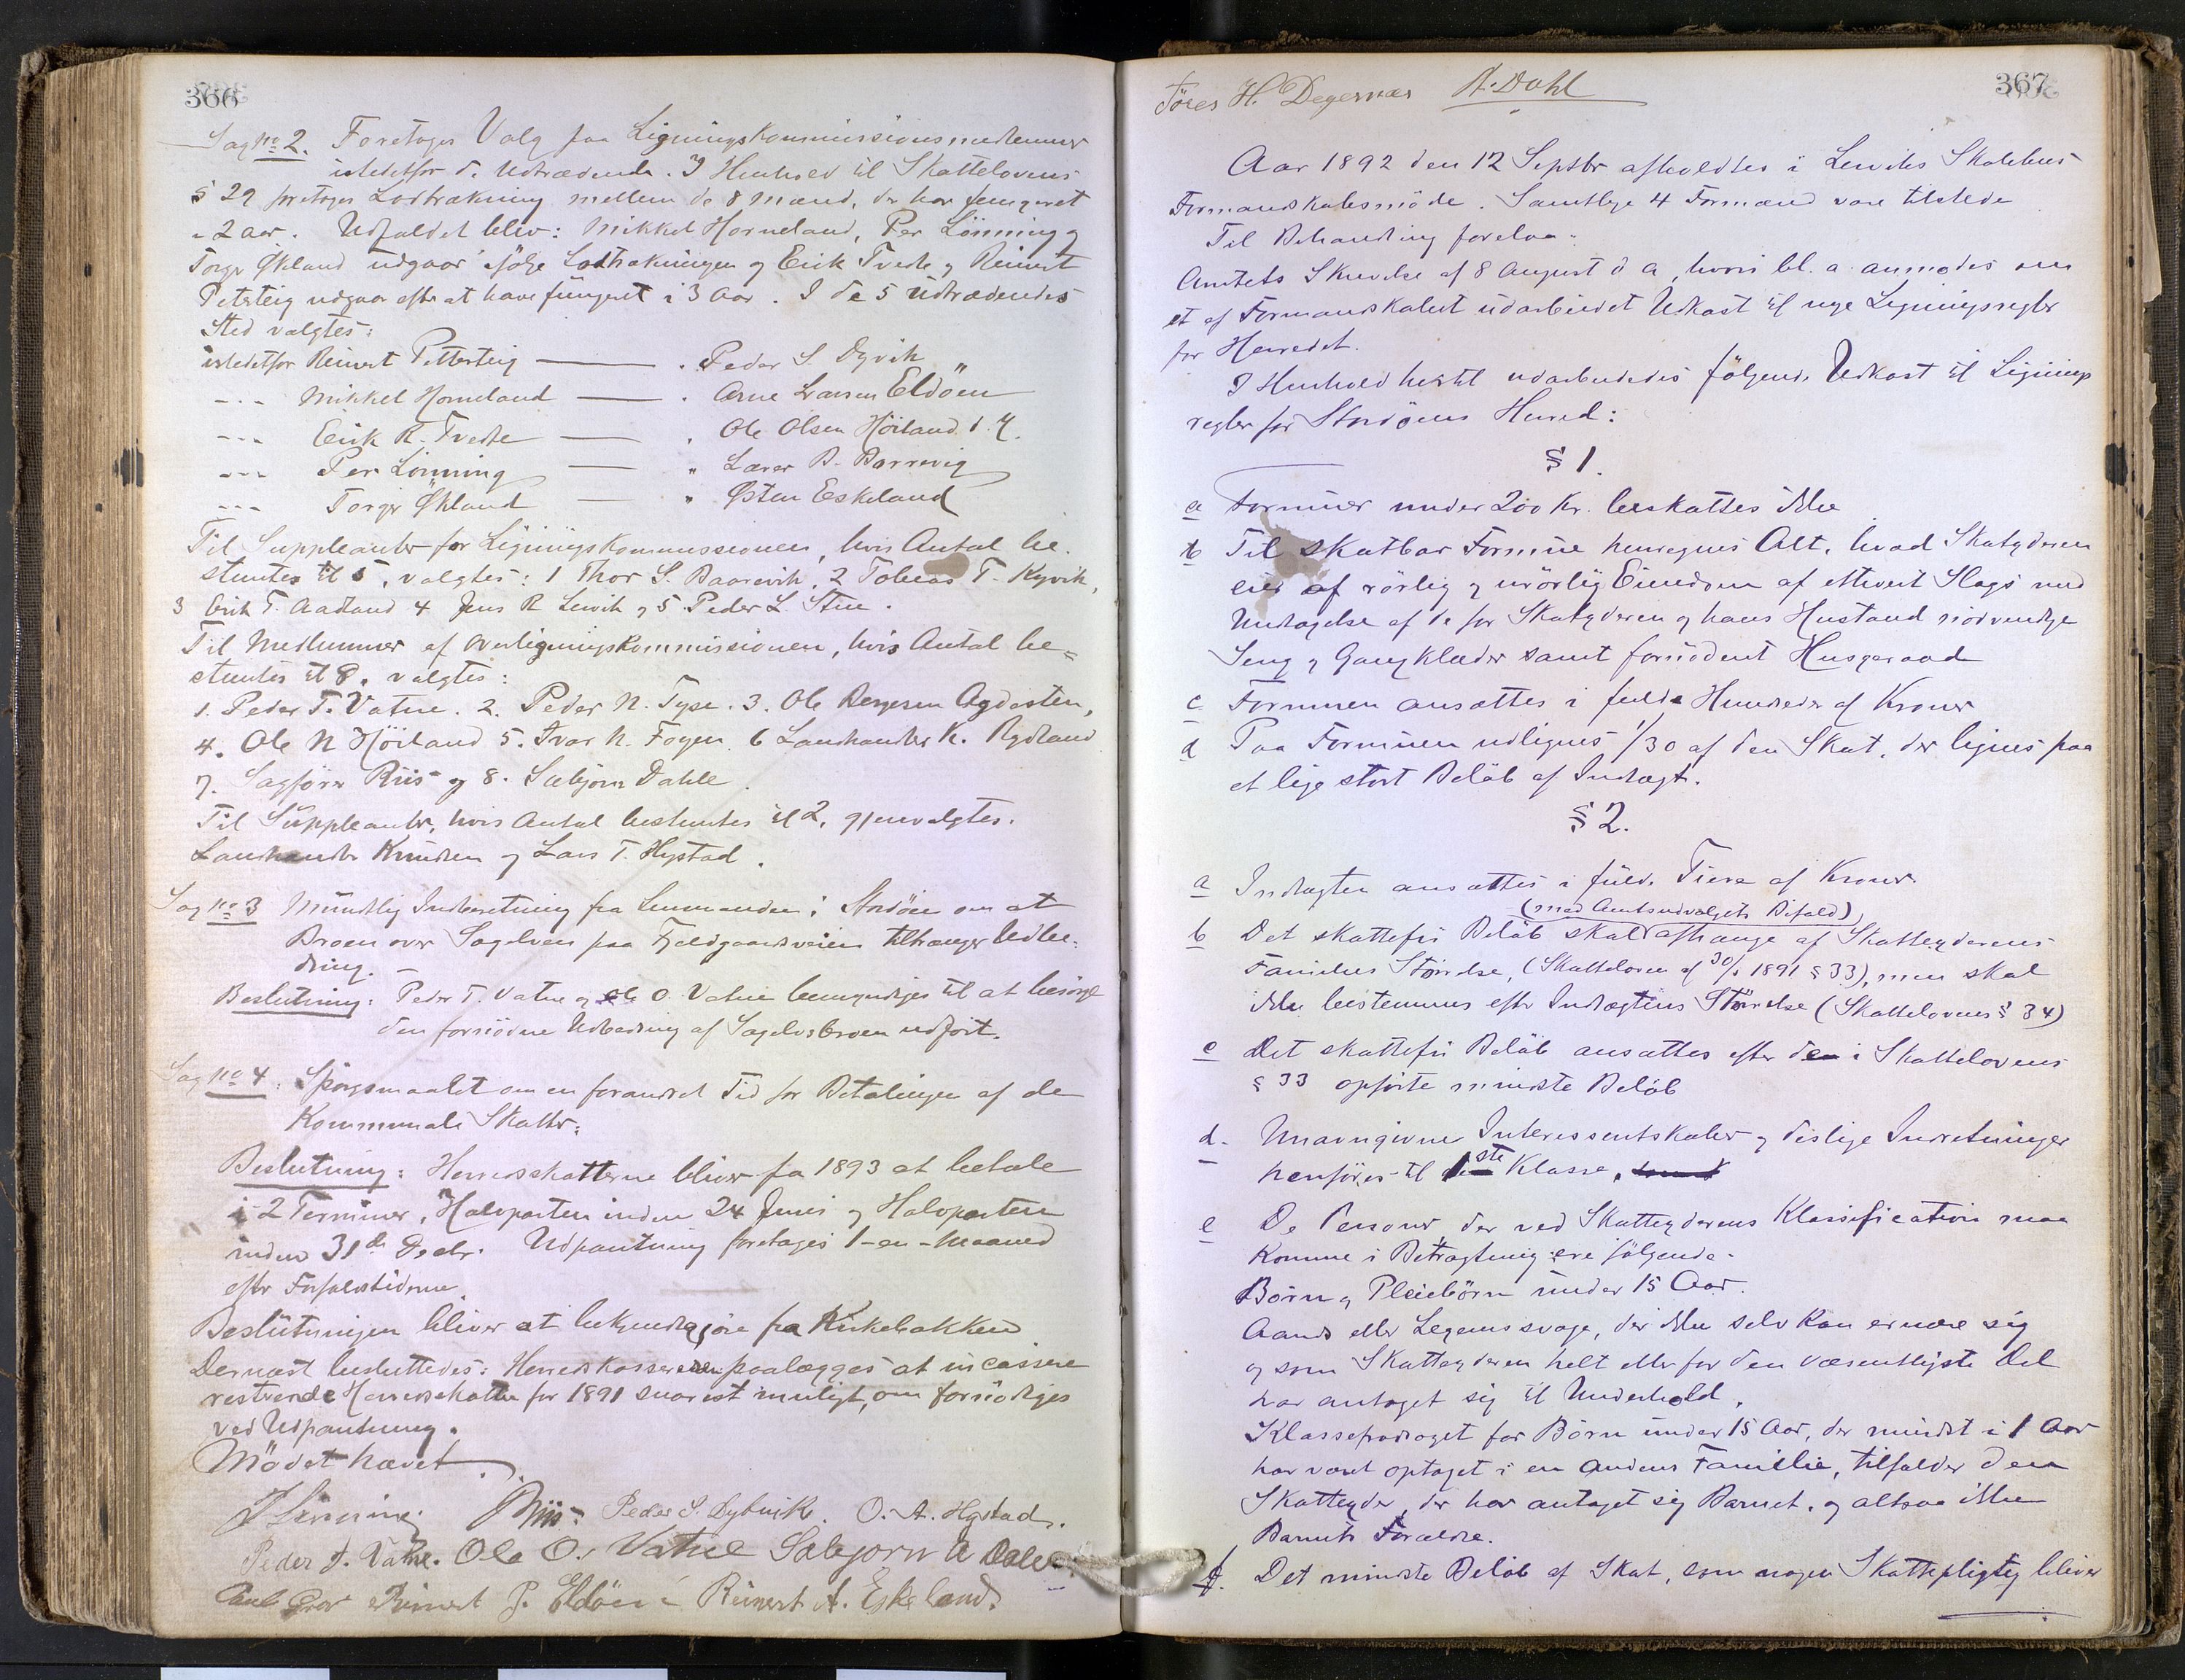 366
Sag no 2. Foretoges Valg paa Ligningskommissionsmedlemmer
istedetfor de Udtrædende. I Henhold til Skattelovens
§ 29 foretoges Lodtrækning mellem de 8 Mænd, der har fungeret
i 2 aar. Udfaldet blev: Mikkel Horneland, Per Lönning og
Torger Økland udgaar ifølge Lodtrækningen og Erik Tvedte og Reinert
Petersteig udgaar efter at have fungeret i 3 Aar. I de 5 Udtrædendes
Sted valgtes:
istedetfor Reinert Pettersteig — . Peder S. Dyvik
- - - Mikkel Horneland — . Arne Larsen Eldöen
- - - Erik R. Tvedte — . Ole Olsen Höiland d. Y.
- - - Per Lönning — " Lærer B. Barrevig
- - - Torger Økland — " Østen Eskeland
Til Suppleanter for Ligningskommissionen, hvis Antal be-
stemtes til 5, valgtes: 1 Thor S. Baarevik, 2 Tobias T. Kyvik,
3 Erik T. Aadland 4 Jens R Lervik og 5 Peder L. Stue.
Til Medlemmer af Overligningskommissionen, hvis Antal be=
stemtes til 8, valgtes:
1. Peder T. Vatne. 2. Peder N. Tyse. 3. Ole Bergesen Agdesten,
4. Ole N Höiland 5. Ivar N. Foyen 6 Landhandler K. Rydland
7. Sagfører Riis og 8. Sæbjörn Dahle.
Til Suppleanter, hvis Antal bestemtes til 2, gjenvalgtes.
Landhandler Knudsen og Lars T. Hystad.
Sag no 3 Mundtlig Indberetning fra Lensmanden i Stordöen om at
Broen over Sagelven paa Fjeldgaardsveien tiltrænger Udbe-
dring.
Beslutning: Peder T. Vatne og Ole O. Vatne bemyndiges til at besörge
den fornödne Udbedring af Sagelvsbroen udfört.
Sag no 4: Spörgsmaalet om en forandret Tid for Betalingen af de
Kommunale Skatter.
Beslutning: Herredsskatterne bliver fra 1893 at betale
i 2 Terminer, Halvparten inden 24 Juni og Halvparten
inden 31te Decbr. Udpantning foretages 1-en-Maaned
efter Forfaldstiderne.
Beslutningen bliver at bekjendtgjöre fra Kirkebakken
Dernæst besluttedes: Herredskassereren paalægges at incassere
resterende Herredsskatter for 1891 snarest muligt, om fornödiges
ved Udpantning.
Mödet hævet.
P Lönning. Riis. Peder S. Dybvik. O. A. Hystad.
Peder T. Vatne. Ole O. Vatne Sæbjörn A Dale.
Reinert P. Eldöen Reinert A. Eskeland.
367
Töres H. Degernæs A. Dahl
Aar 1892 den 12 Septbr afholdtes i Lerviks Skolehus
Formandskabsmöde. Samtlige 4 Formænd vare tilstede
Til Behandling forelaa:
Amtets Skrivelse af 8 August d a, hvori bl. a. anmodes om
et af Formandskabet udarbeidet Udkast til nye Ligningsregler
for Herredet.
I Henhold hertil udarbeidedes fölgende Udkast til Lignings
regler for Stordöens Herred:
§ 1.
a Formuer under 200 Kr. beskattes ikke
b Til skatbar Formue henregnes Alt, hvad Skatyderen
eier af rörlig og urörlig Eiendom af ethvert Slags med
Undtagelse af de for Skatyderen og hans Husstand nödvendige
Seng og Gangklæder samt fornödent Husgeraad
c Formuen ansættes i fulde Hundreder af Kroner
d Paa Formuen udlignes 1/30 af den Skat, der lignes paa
et lige stort Belöb af Indtægt.
§ 2.
a Indtægten ansættes i fulde Tiere af Kroner
(med Amtsudvalgets Bifald)
b Det skattefri Belöb skal afhænge af Skatteyderens
Families Störrelse, (Skatteloven af 30/5 1891 § 33), men skal
ikke bestemmes efter Indtægtens Störrelse (Skattelovens § 34)
c Det skattefri Belöb ansættes efter de i Skattelovens
§ 33 opförte mindste Belöb
d. Unavngivne Interessentskaber og deslige Indretninger
henföres til 1ste Klasse.
e De Personer, der ved Skatteyderens Klassification maa
komme i Betragtning ere fölgende.
Börn og Pleiebörn under 15 Aar.
Aands eller Legemssvage, der ikke selv kan ernære sig
og som Skatteyderen helt eller for den væsentligste Del
har antaget sig til Underhold.
Klassefradraget for Börn under 15 Aar, der mindst i 1 Aar
har været optaget i en Andens Familie, tilfalder den
Skatteyder, der har antaget sig Barnet, og altsaa ikke
Barnets Forældre.
f. Det mindste Belöb af Skat, som nogen Skattepligtig bliver